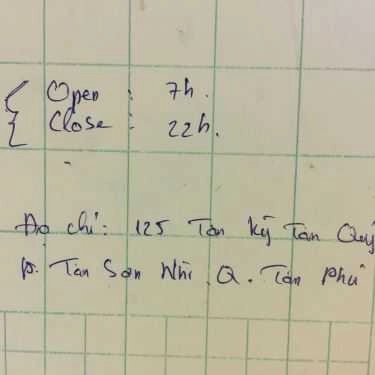 Open : 7h.
Close : 22h.
Địa chỉ: 125 Tân Kỳ Tân Quý
P. Tân Sơn Nhì . Q. Tân Phú